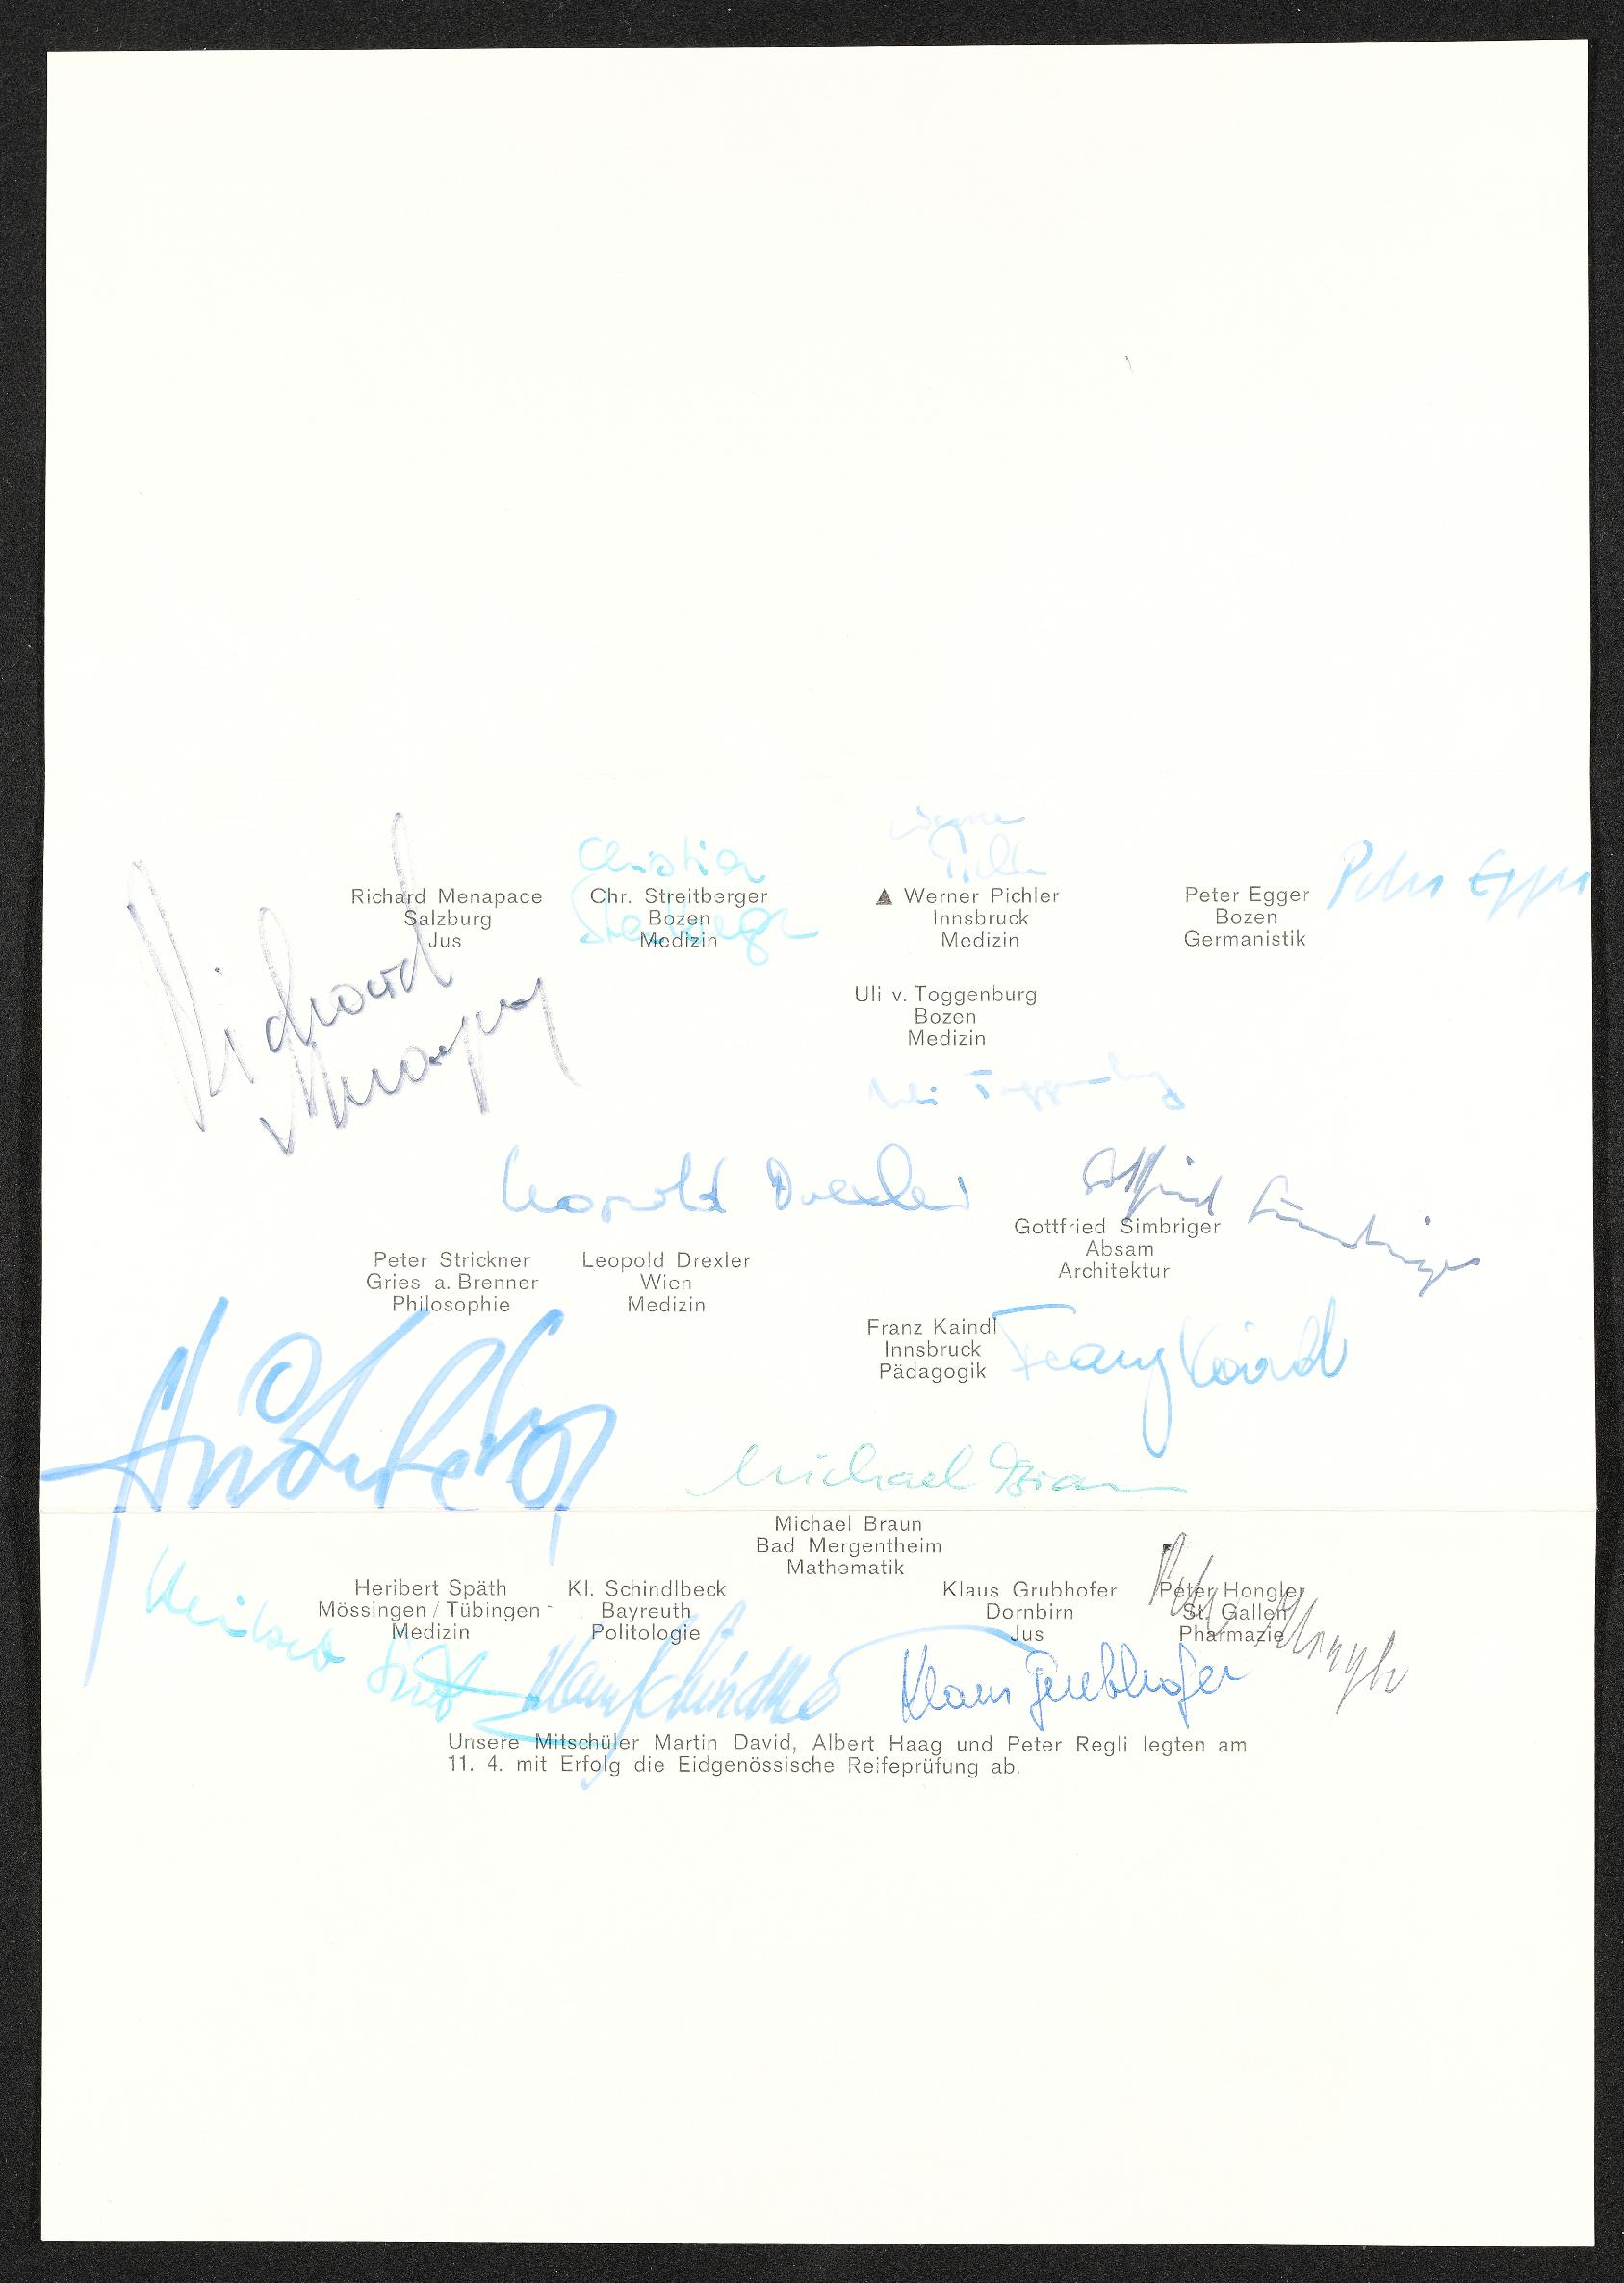 Christian
Werner
Pichler
Peter Egger
Richard Menapace
Salzburg
Jus
Chr. Streitberger
Bozen
Medizin
Streitberger
▲ Werner Pichler
Innsbruck
Medizin
Peter Egger
Bozen
Germanistik
Richard
Menapace
Uli v. Toggenburg
Bozen
Medizin
Uli Toggenburg
Leopold Drexler
Gottfried Simbriger
Gottfried Simbriger
Absam
Architektur
Peter Strickner
Gries a. Brenner
Philosophie
Leopold Drexler
Wien
Medizin
Franz Kaindl
Innsbruck
Pädagogik
Franz Kaindl
Michael Braun
Michael Braun
Bad Mergentheim
Mathematik
Heribert Späth
Mössingen / Tübingen
Medizin
Kl. Schindlbeck
Bayreuth
Politologie
Klaus Grubhofer
Dornbirn
Jus
Peter Hongler
St. Gallen
Pharmazie
Peter Hongler
Heribert Späth
Klaus Schindlbeck
Klaus Grubhofer
Unsere Mitschüler Martin David, Albert Haag und Peter Regli legten am
11. 4. mit Erfolg die Eidgenössische Reifeprüfung ab.